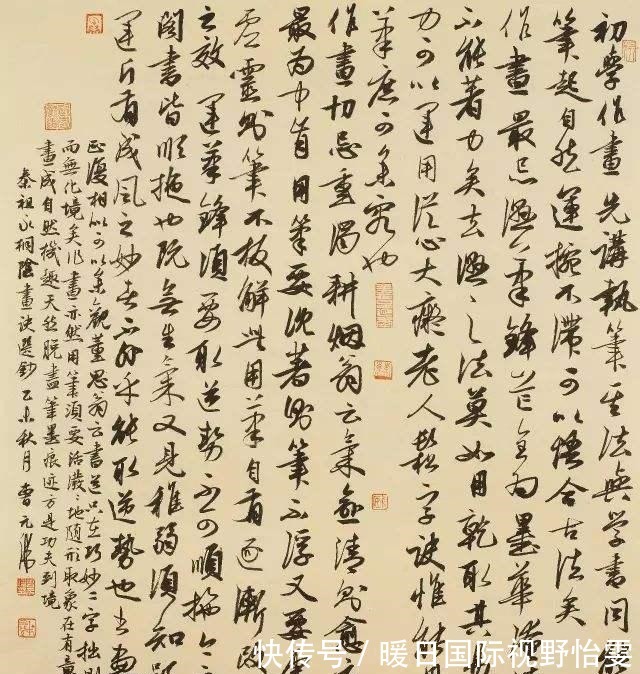 初學作畫先講執筆其法與學書同
筆起自然運掔不滯可以悟合古法矣
作畫最忌濕筆鋒芒全為墨華
不能著力矣去濕之法莫如用乾取其
力可以運用從心大癡老人鬆字訣惟
筆庶可參究也
作畫切忌重濁耕烟翁云氣愈清則愈
最為中肯用筆要沈著則筆不浮又要
虛靈則筆不板解此用筆自有逐漸改
之效運筆鋒須要取逆勢不可順拖
閣書皆順拖也既無生氣又見稚弱須知
運斤有成風之妙者不外乎能取逆勢也書畫
正復相似可以參觀董思翁云書道只在巧妙二字拙則
而無化境矣作畫亦然用筆須要活潑潑地隨形取象在有意
畫成自然機趣天然脫盡筆墨痕迹方是功夫到境
秦祖永桐陰畫訣選鈔乙未秋月曹元
快传号 / 暖日国际视野怡雯